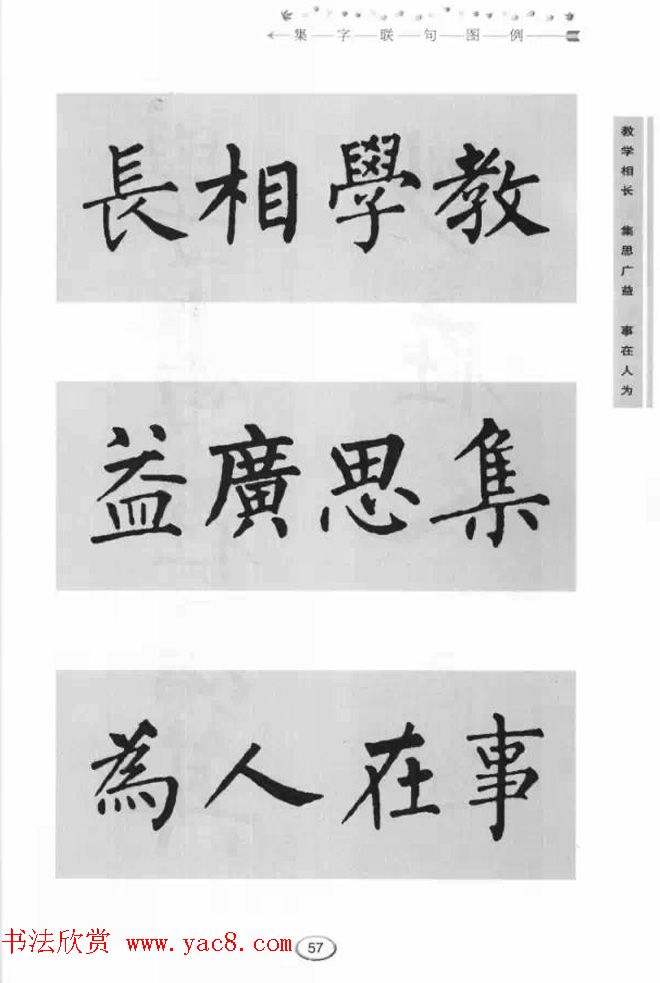 集字联句图例
教学相长 集思广益 事在人为
教學相長
集思廣益
事在人為
书法欣赏 www.yac8.com
57